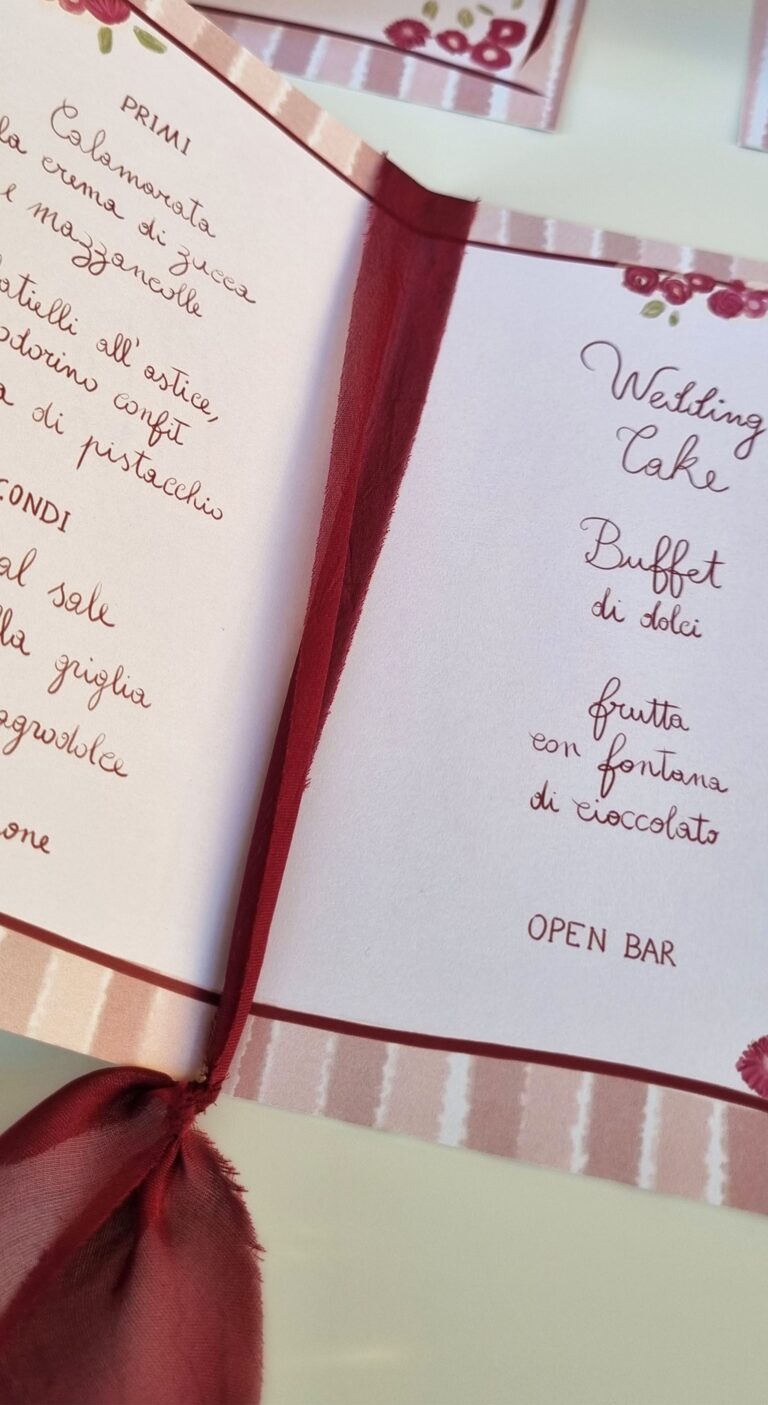 PRIMI
Calamarata
crema di zucca
e mazzancolle
all'astice,
confit
di pistacchio
al sale
griglia
agrodolce
Wedding
Cake
Buffet
di dolci
frutta
con fontana
di cioccolato
OPEN BAR